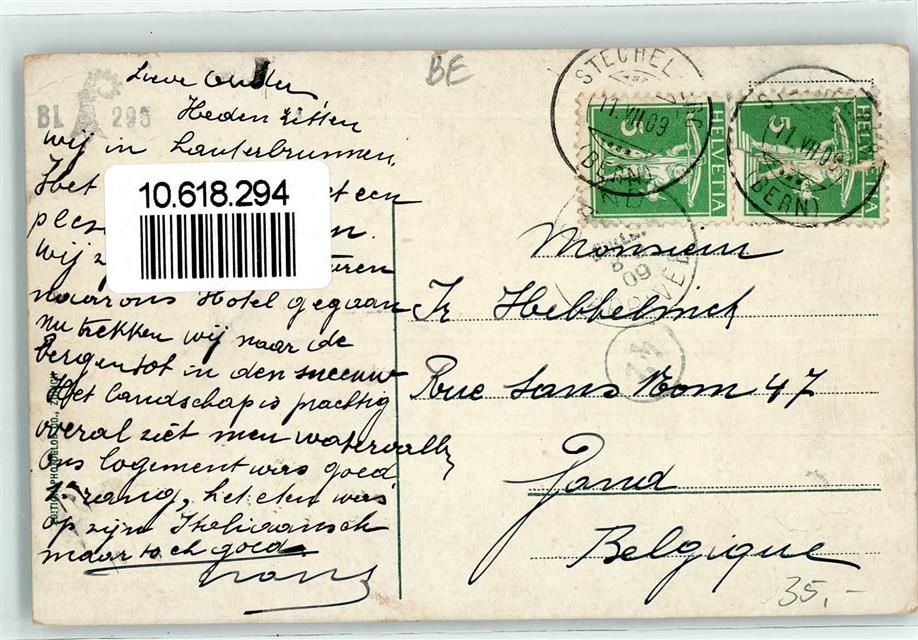 BE
BL 295
Lieve Ouders
Heden zitten
wij in Lauterbrunnen.
Het een
ples
wij
naar ons Hotel gegaan
nu trekken wij naar de
bergen tot in den sneeuw
Het landschap is prachtig
overal ziet men watervalln
Ons logement was goed
1e rang, het eten was
op zijn Italiaansch
maar toch goed
10.618.294
STECHEL
11.VII.09
(BERN)
HELVETIA
5
11.VII.09
(BERN)
HELVETIA
5
09
Monsieur
Fr Hebbelinck
Rue Sans Nom 47
Gand
Belgique
35,-